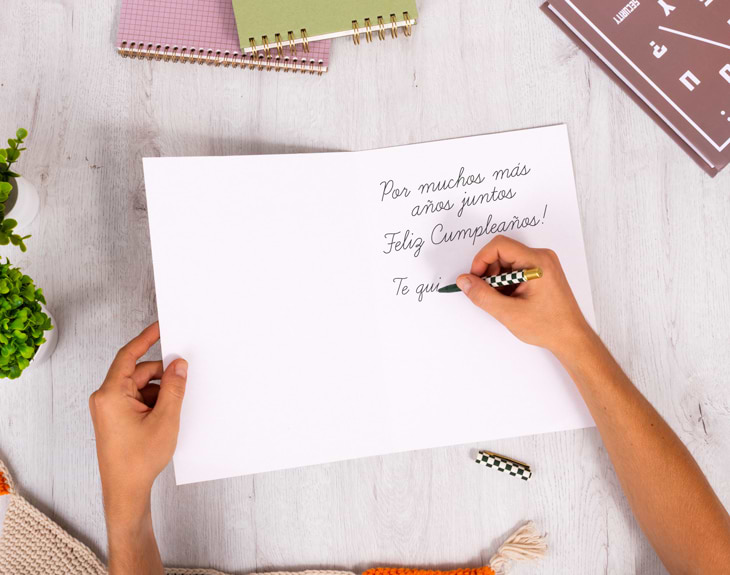 SECURITY
Por muchos más
años juntos
Feliz Cumpleaños!
Te qui